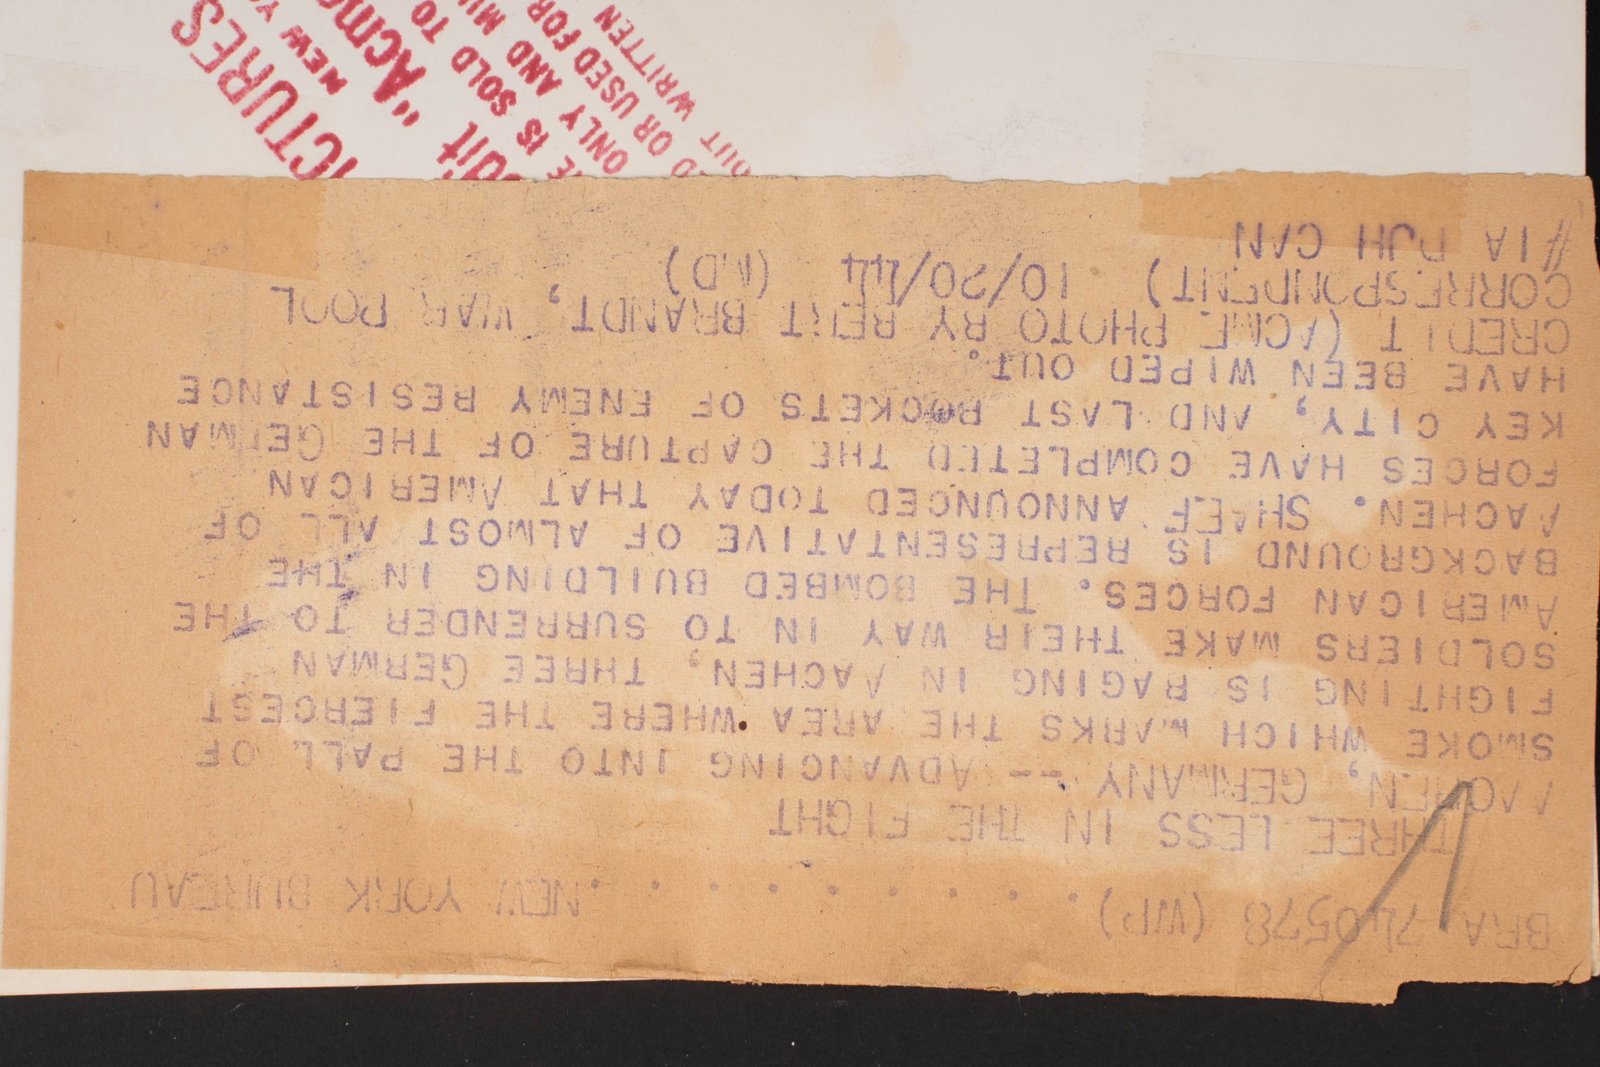 BRA 740578 (WP) . . . . . . . . . . NEW YORK BUREAU
THREE LESS IN THE FIGHT
AACHEN, GERMANY -- ADVANCING INTO THE PALL OF
SMOKE WHICH MARKS THE AREA WHERE THE FIERCEST
FIGHTING IS RAGING IN AACHEN, THREE GERMAN
SOLDIERS MAKE THEIR WAY IN TO SURRENDER TO THE
AMERICAN FORCES. THE BOMBED BUILDING IN THE
BACKGROUND IS REPRESENTATIVE OF ALMOST ALL OF
AACHEN. SHAEF ANNOUNCED TODAY THAT AMERICAN
FORCES HAVE COMPLETED THE CAPTURE OF THE GERMAN
KEY CITY, AND LAST POCKETS OF ENEMY RESISTANCE
HAVE BEEN WIPED OUT.
CREDIT (ACME PHOTO BY BERT BRANDT, WAR POOL
CORRESPONDENT) 10/20/44 (MD)
#1A DJH CAN
CTURES
NEW Y
dit "Acm
E IS SOLD TO
ONLY AND MU
D OR USED FOR
OUT WRITTEN